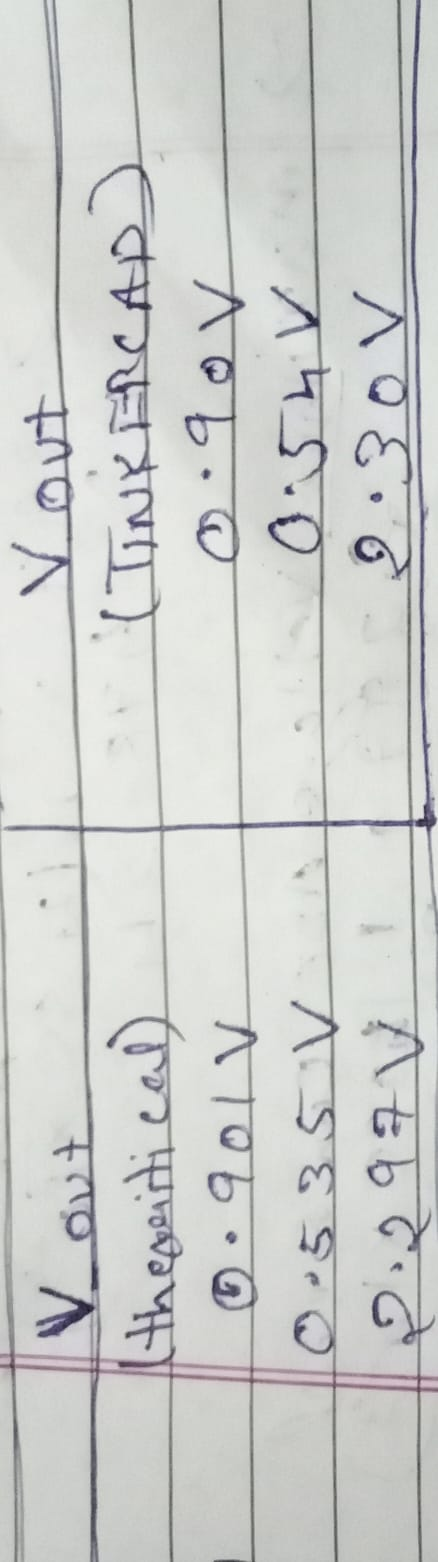 V out V out
(theoritical) (TINKERCAD)
0.901V 0.90V
0.535V 0.54V
2.297V 2.30V